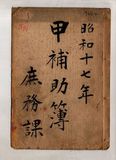 昭和十七年
甲補助簿
庶務課